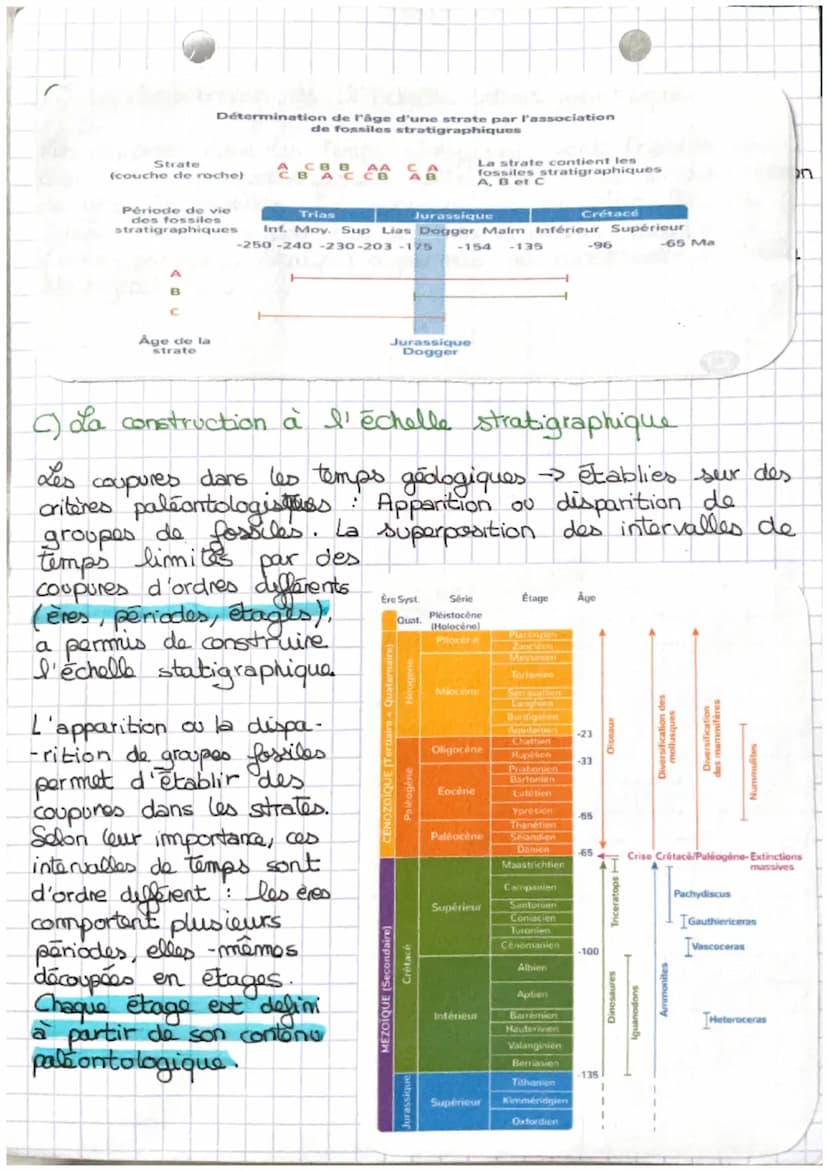 Détermination de l'âge d'une strate par l'association
de fossiles stratigraphiques
Strate
(couche de roche)
A C B B A A C A
C B A C C B A B
La strate contient les
fossiles stratigraphiques
A, B et C
on
Période de vie
des fossiles
stratigraphiques
Trias Jurassique Crétacé
Inf. Moy. Sup Lias Dogger Malm Inférieur Supérieur
-250 -240 -230 -203 -175 -154 -135 -96 -65 Ma
A
B
C
Âge de la
strate
Jurassique
Dogger
C) La construction à l'échelle stratigraphique
Les coupures dans les temps géologiques -> établies sur des
critères paléontologistques : Apparition ou disparition de
groupes de fossiles. La superposition des intervalles de
temps limités par des
coupures d'ordres différents
(ères, périodes, étages),
a permis de construire
l'échelle statigraphique.
L'apparition ou la dispa-
-rition de groupes fossiles
permet d'établir des
coupures dans les strates.
Selon leur importance, ces
intervalles de temps sont
d'ordre différent : les ères
comportent plusieurs
périodes, elles-mêmes
découpées en étages.
Chaque étage est défini
à partir de son contenu
paléontologique.
Ère Syst. Série Étage Âge
Quat. Pléistocène
(Holocène)
CÉNOZOÏQUE (Tertiaire + Quaternaire)
Néogène
Pliocène
Plaisancien
Zancléen
Messinien
Miocène
Tortonien
Serravallien
Langhien
Burdigalien
Aquitanien
-23
Paléogène
Oligocène
Chattien
Rupélien
-33
Eocène
Priabonien
Bartonien
Lutétien
Yprésien
-55
Paléocène
Thanétien
Sélandien
Danien
-65
Oiseaux
Diversification des
mollusques
Diversification
des mammifères
Nummulites
Crise Crétacé/Paléogène-Extinctions
massives
MÉZOIQUE (Secondaire)
Crétacé
Supérieur
Maastrichtien
Campanien
Santonien
Coniacien
Turonien
Cénomanien
-100
Intérieur
Albien
Aptien
Barrémien
Hauterivien
Valanginien
Berriasien
-135
Jurassique
Supérieur
Tithonien
Kimméridgien
Oxfordien
Triceratops
Dinosaures
Iguanodons
Ammonites
Pachydiscus
Gauthiericeras
Vascoceras
Heteroceras